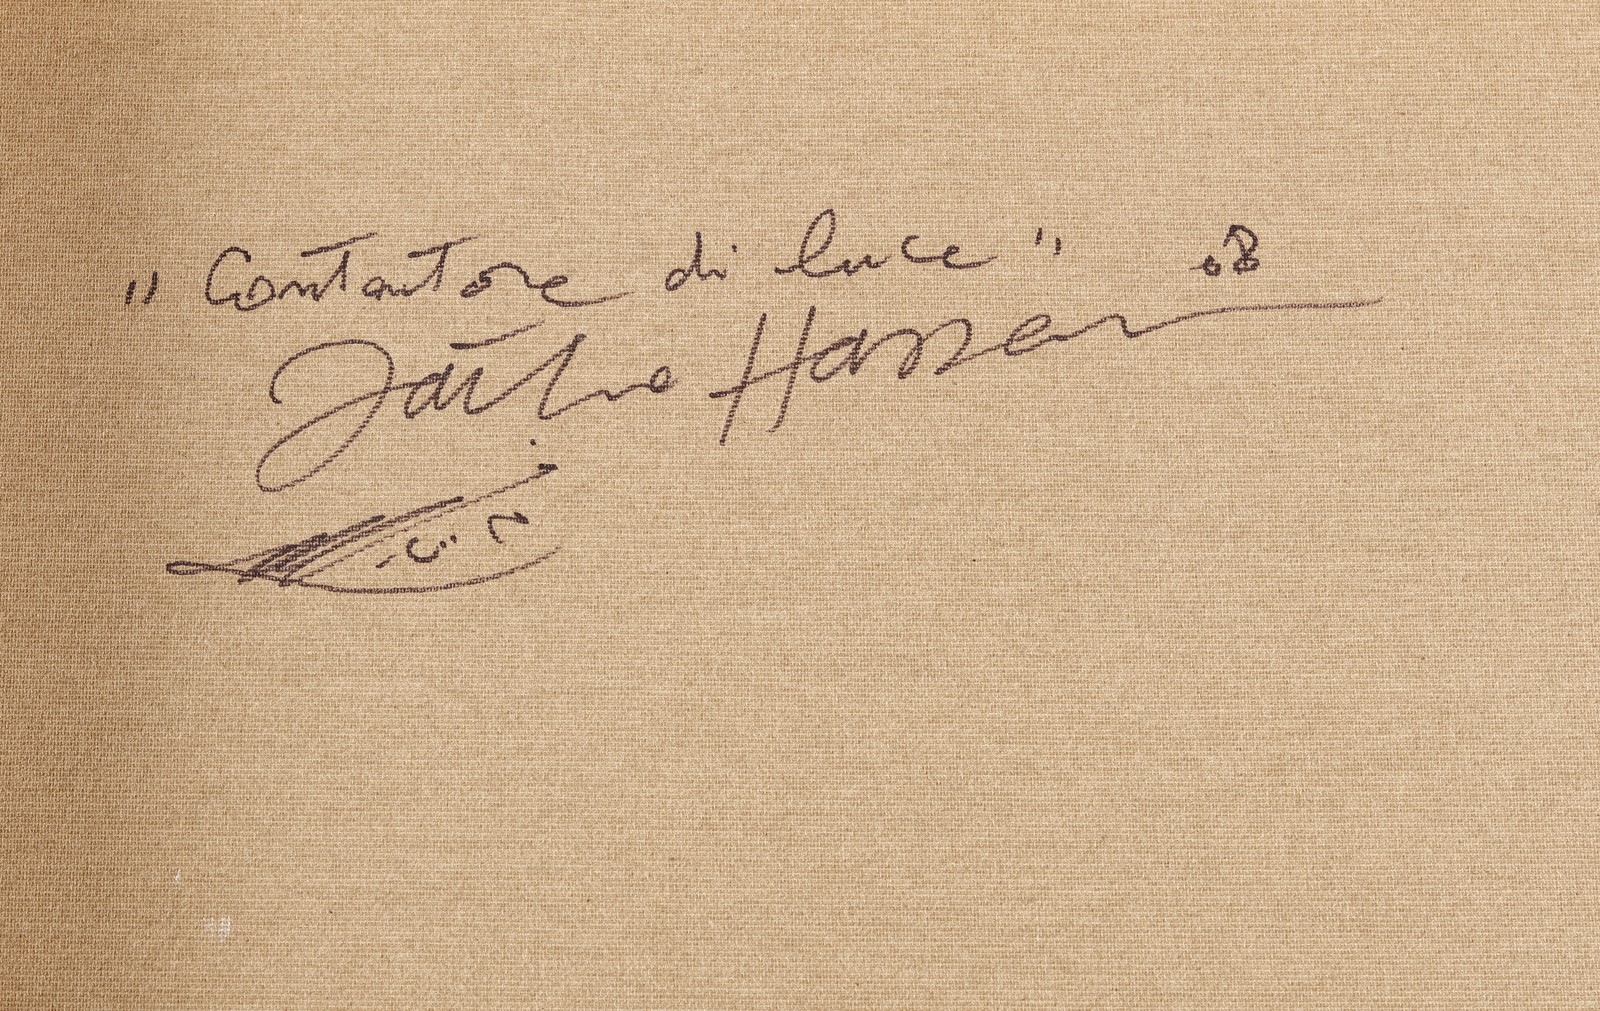 "Cantautore di luce" 08
Fathi Hassan